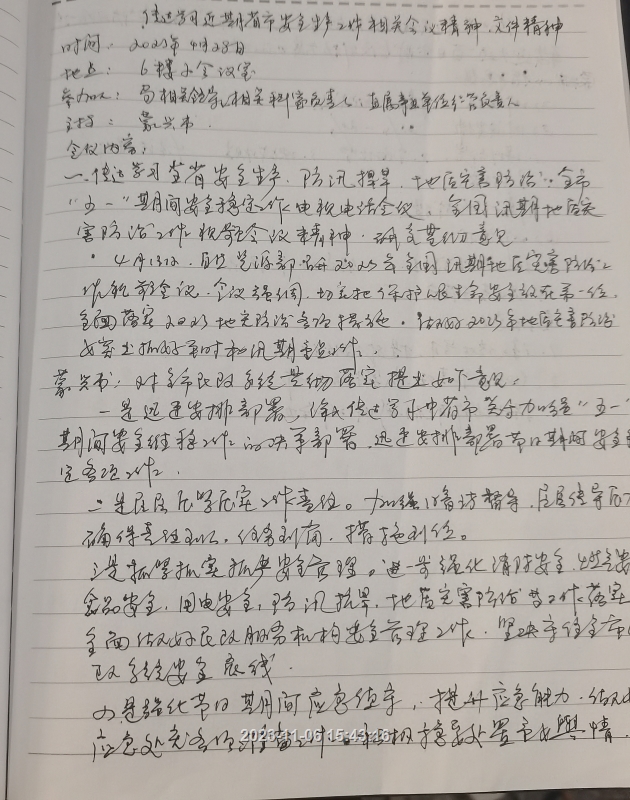 传达学习近期省市安全生产工作相关会议精神、文件精神
时间：2023年4月28日
地点：6楼小会议室
参加人：局相关领导、相关科室负责人、直属事业单位负责人
主持：蒙兴书
会议内容：
一、传达学习全省安全生产、防汛捍旱、地质灾害防治、全市
“五一”期间安全稳定工作电视电话会议、全国汛期地质灾
害防治工作视频会议精神，研究贯彻意见
4月13日，自然资源部召开2023年全国汛期地质灾害防治工
作视频会议。会议强调，切实把保护人民生命安全放在第一位，
全面落实2023地灾防治各项措施。做好2023年地质灾害防治
要突出抓好军时和汛期重点工作。
蒙兴书：对全市民政系统贯彻落实提出如下意见：
一是迅速安排部署。传达学习中省市关于加强“五一”
期间安全维稳工作的决策部署，迅速安排部署节日期间安全稳
定各项工作。
二是层层压紧压实工作责任。加强督访指导，
确保责任到人、任务到岗、措施到位。
三是抓紧抓实抓牢安全管理。进一步强化消防安全、燃气安
食品安全、用电安全、防汛抗旱、地质灾害防治等工作落实
全面做好民政服务机构安全管理工作，坚决守住全市
政系统安全底线。
四是强化节日期间应急值守，提升应急能力，做好
应急处突各项准备工作，积极稳妥处置舆情。
2023-11-06 15:43:36